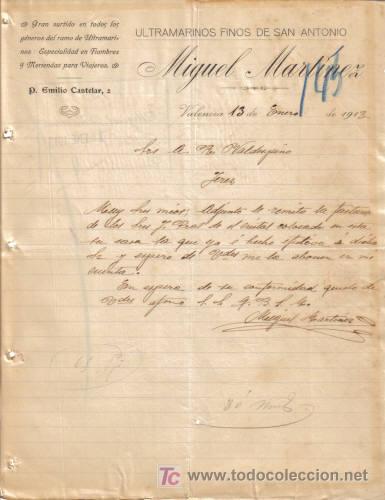 Gran surtido en todos los
géneros del ramo de Ultramari-
nos - Especialidad en Fiambres
y Meriendas para Viajeros.
P. Emilio Castelar, 2
ULTRAMARINOS FINOS DE SAN ANTONIO
Miguel Martínez
Valencia 13 de Enero de 1913
Sres A. R. Valdespino
Jerez
Muy Sres mios: Adjunto le remito la factura
de los Sres J. de cristal colocado en esta
su casa la que ya é hecho efectiva a dicho
Sr y espero de Vdes me la abonen en mi
cuenta.
En espera de su conformidad queda de
Vdes afmo S. S. Q. B. S. M.
Miguel Martinez
TC todocoleccion
www.todocoleccion.net